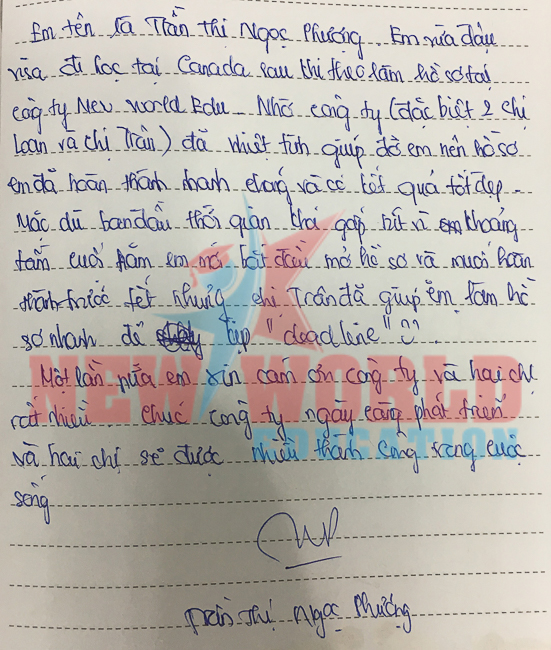 Em tên là Trần Thị Ngọc Phương. Em vừa đậu
visa đi học tại Canada sau khi thực làm hồ sơ tại
công ty New World Edu. Nhờ công ty (đặc biệt 2 chị
Loan và chị Trân) đã nhiệt tình giúp đỡ em nên hồ sơ
em đã hoàn thành nhanh chóng và có kết quả tốt đẹp.
Mặc dù ban đầu thời gian khá gấp rút vì em khoảng
tầm cuối năm em mới bắt đầu mở hồ sơ và muốn hoàn
thành trước tết nhưng chị Trân đã giúp em làm hồ
sơ nhanh để kịp "deadline"
Một lần nữa em xin cảm ơn công ty và hai chị
rất nhiều chúc công ty ngày càng phát triển
và hai chị sẽ được nhiều thành công trong cuộc
sống
Trần Thị Ngọc Phương
NEW WORLD
EDUCATION